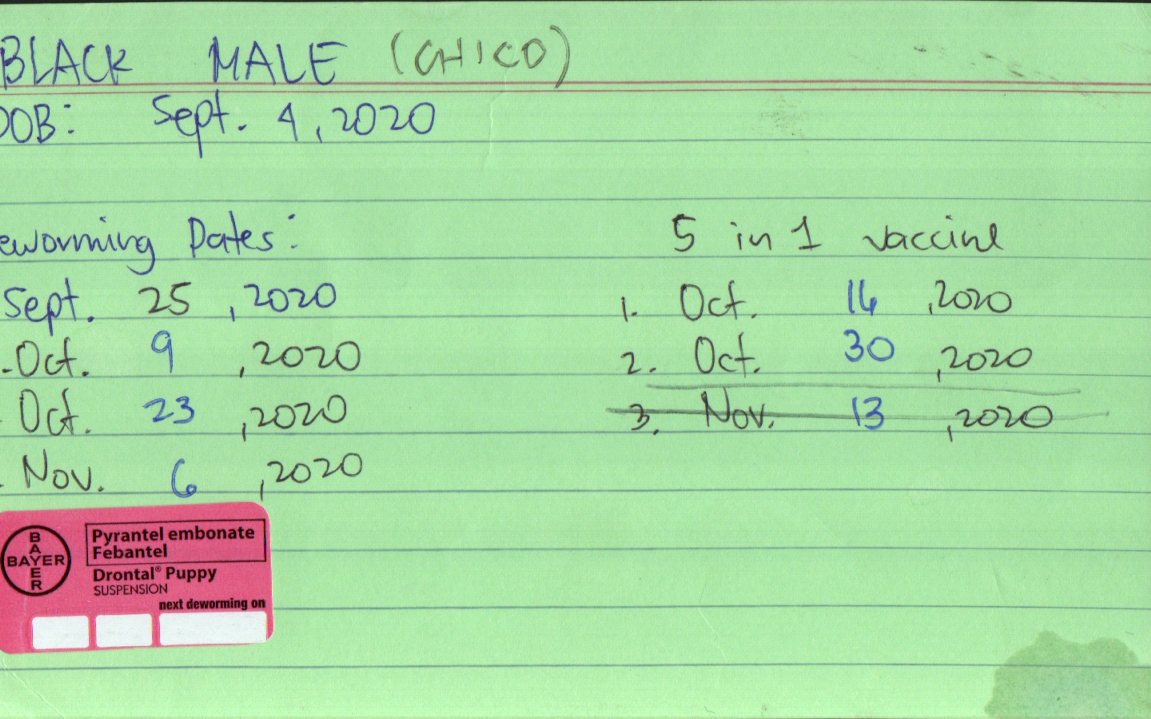 BLACK MALE (CHICO)
DOB: Sept. 4, 2020
eworming Dates:
Sept. 25, 2020
. Oct. 9, 2020
Oct. 23, 2020
. Nov. 6, 2020
5 in 1 vaccine
1. Oct. 16, 2020
2. Oct. 30, 2020
3. Nov. 13, 2020
BAYER
BAYER
Pyrantel embonate
Febantel
Drontal® Puppy
SUSPENSION
next deworming on